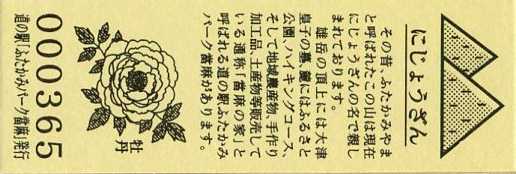 にじょうざん
その昔、ふたかみやま
と呼ばれたこの山は現在
にじょうざんの名で親し
まれております。
雄岳の頂上には大津
皇子の墓、麓にはふるさと
公園、ハイキングコース、
そして地域農産物、手作り
加工品、土産物等販売して
いる通称「當麻の家」と
呼ばれる道の駅ふたかみ
パーク當麻があります。
牡丹
000365
道の駅「ふたかみパーク當麻」発行